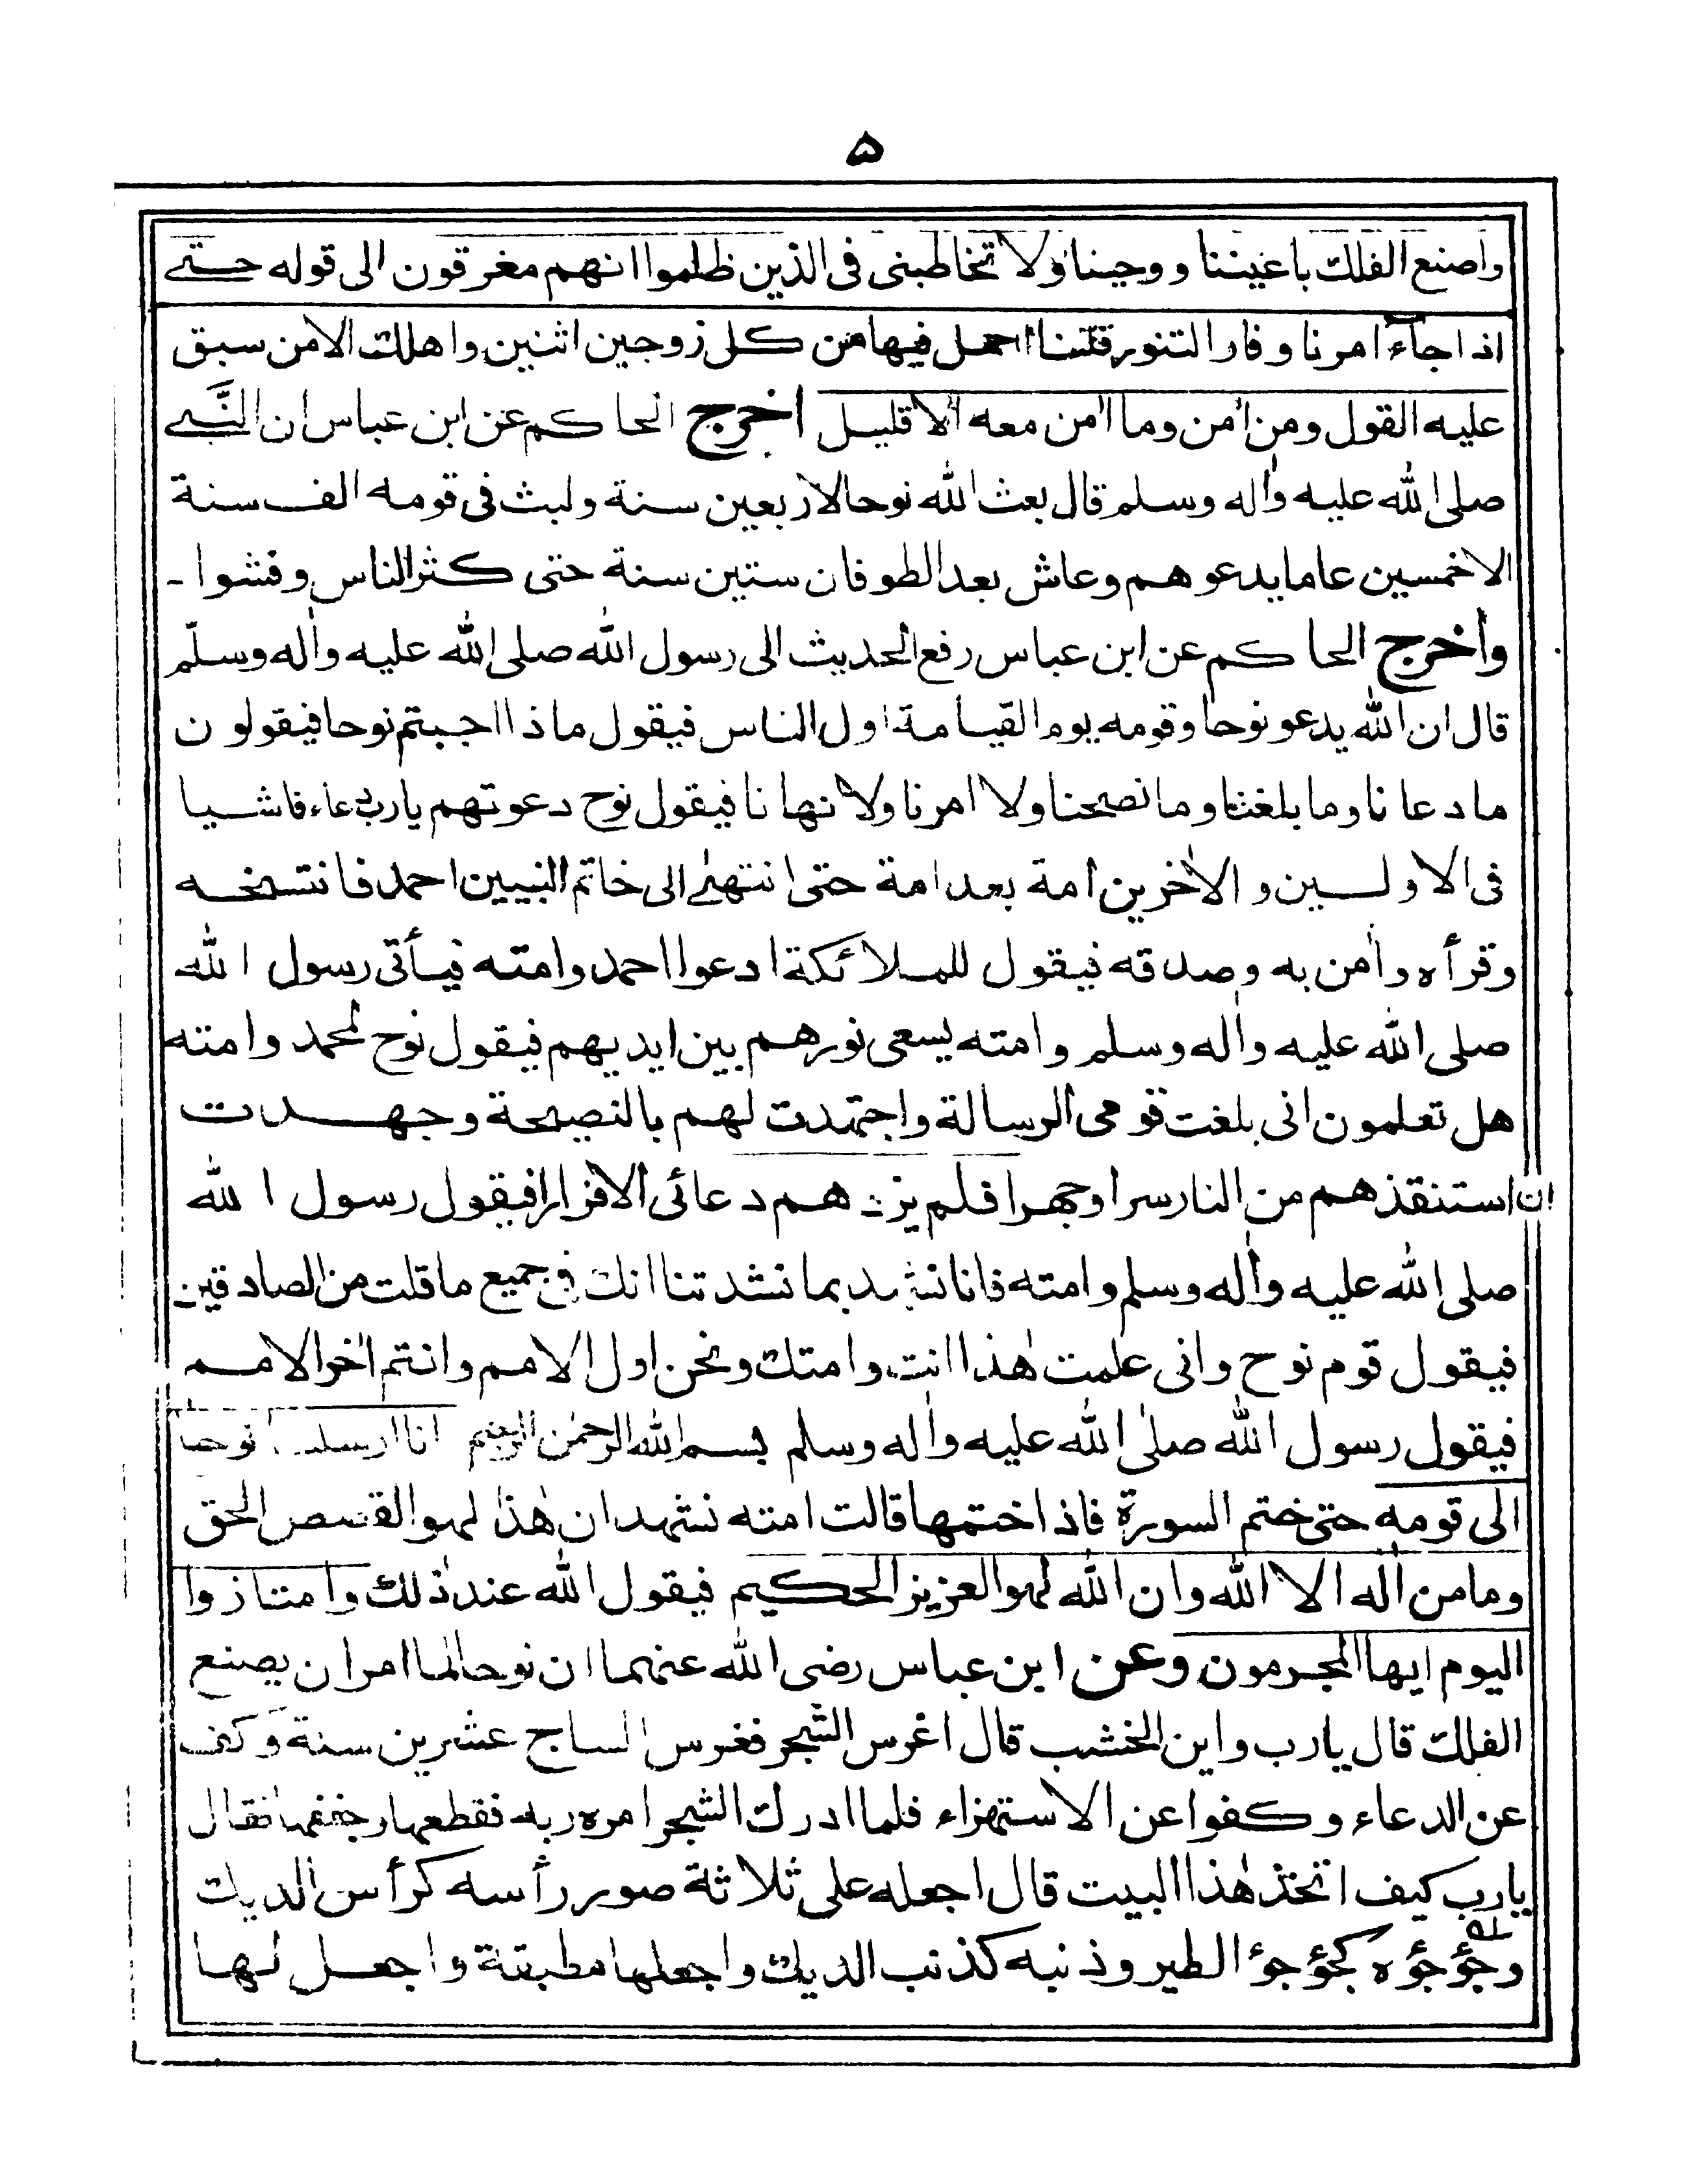 ۵
واصنع الفلك باعيننا ووحينا ولا تخاطبنى فى الذين ظلموا انهم مغرقون الى قوله حتے
اذا جآء امرنا وفار التنور قلنا احمل فيها من كل زوجين اثنين واهلك الا من سبق
عليه القول ومن اٰمن وما اٰمن معه الا قليل اخرج الحاكم عن ابن عباس ان النَّبے
صلى الله عليه واٰله وسلم قال بعث الله نوحا لاربعين سنة ولبث فى قومه الف سنة
الا خمسين عاما يدعوهم وعاش بعد الطوفان ستين سنة حتى كثر الناس وفشوا -
واخرج الحاكم عن ابن عباس رفع الحديث الى رسول الله صلى الله عليه واٰله وسلّم
قال ان الله يدعو نوحا وقومه يوم القيامة اول الناس فيقول ماذا اجبتم نوحا فيقولون
ما دعانا وما بلغنا وما نصحنا ولا امرنا ولا نهانا فيقول نوح دعوتهم يارب دعاء فاشيا
فى الاولين والاٰخرين امة بعد امة حتى انتهىٰ الى خاتم النبيين احمد فانتسخه
وقرأه واٰمن به وصدقه فيقول للملائكة ادعوا احمد وامته فيأتى رسول الله
صلى الله عليه واٰله وسلم وامته يسعى نورهم بين ايديهم فيقول نوح لمحمد وامته
هل تعلمون انى بلغت قومى الرسالة واجتهدت لهم بالنصيحة وجهدت
ان استنقذهم من النار سرا وجهرا فلم يزدهم دعائى الا فرارا فيقول رسول الله
صلى الله عليه واٰله وسلم وامته فانا نشهد بما نشدتنا انك فى جميع ما قلت من الصادقين
فيقول قوم نوح وانى علمت هٰذا انت وامتك ونحن اول الامم وانتم اٰخر الامم
فيقول رسول الله صلى الله عليه واٰله وسلم بسم الله الرحمٰن الرحيم انا ارسلنا نوحا
الى قومه حتى ختم السورة فاذا ختمها قالت امته نشهد ان هٰذا لهو القصص الحق
وما من اٰله الا الله وان الله لهو العزيز الحكيم فيقول الله عند ذٰلك وامتازوا
اليوم ايها المجرمون وعن ابن عباس رضى الله عنهما ان نوحا لما امر ان يصنع
الفلك قال يارب واين الخشب قال اغرس الشجر فغرس الساج عشرين سنة وكف
عن الدعاء وكفوا عن الاستهزاء فلما ادرك الشجر امره ربه فقطعها وجففها فقال
يارب كيف اتخذ هٰذا البيت قال اجعله على ثلاثة صور رأسه كرأس الديك
وجؤجؤه كجؤجؤ الطير وذنبه كذنب الديك واجعلها مطبقة واجعل لها